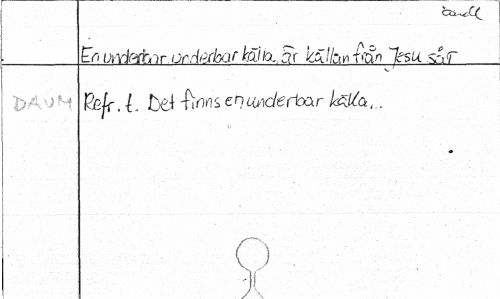 En underbar, underbar källa, är källan från Jesu sår
DAUM Refr. t. Det finns en underbar källa...